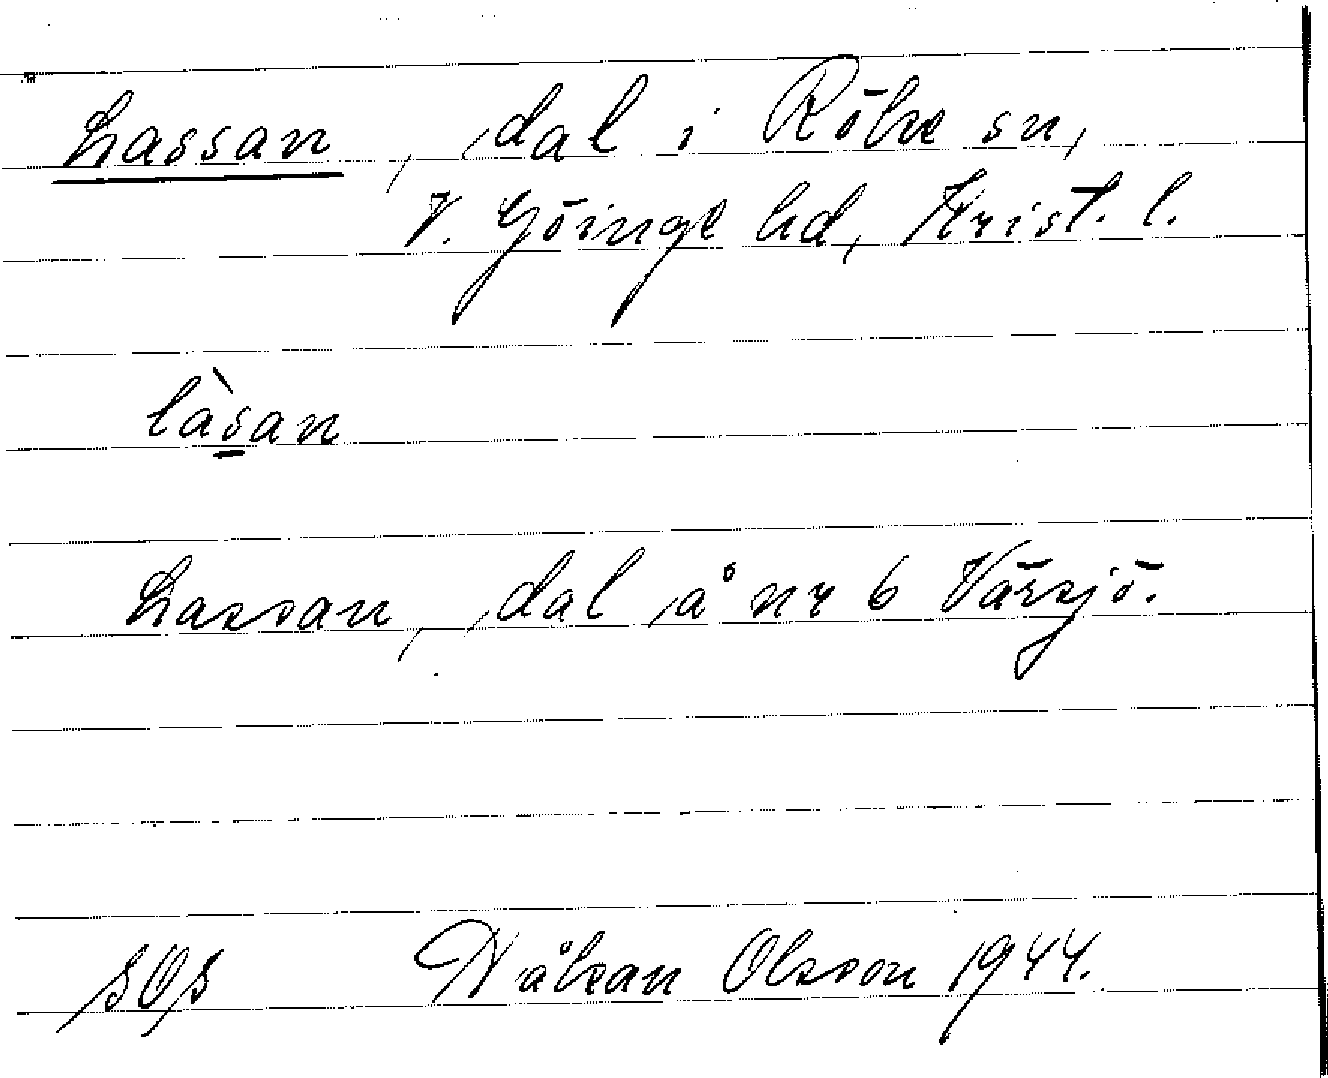 Lassan, dal i Röke sn,
V. Göinge hd, Krist. l.
làsan
Lassan, dal å nr 6 Värsjö.
SOS Håkan Olsson 1944.